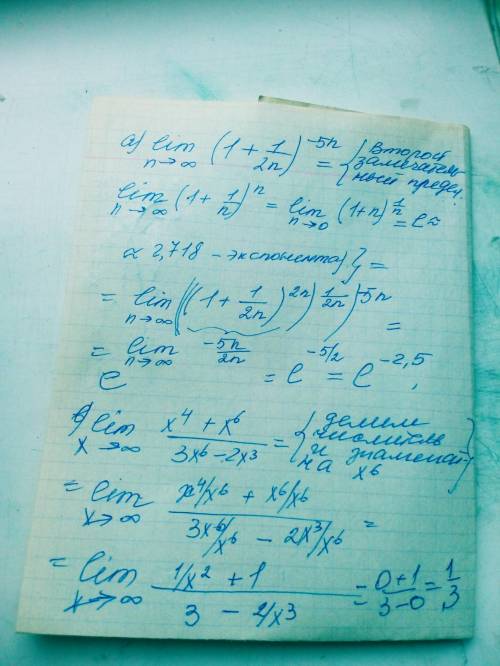 a) lim n→∞ (1 + 1/2n)^-5n = { второй замечательный предел.
lim n→∞ (1 + 1/n)^n = lim n→0 (1+n)^1/n = e ≈
≈ 2,718 - экспонента } =
= lim n→∞ (((1 + 1/2n)^2n)^1/2n)^-5n =
= lim n→∞ e^-5n/2n = e^-5/2 = e^-2,5,
lim x→∞ (x^4 + x^6)/(3x^6 - 2x^3) = { делим числитель и знаменат на x^6 }
= lim x→∞ (x^4/x^6 + x^6/x^6)/(3x^6/x^6 - 2x^3/x^6) =
= lim x→∞ (1/x^2 + 1)/(3 - 2/x^3) = (0+1)/(3-0) = 1/3